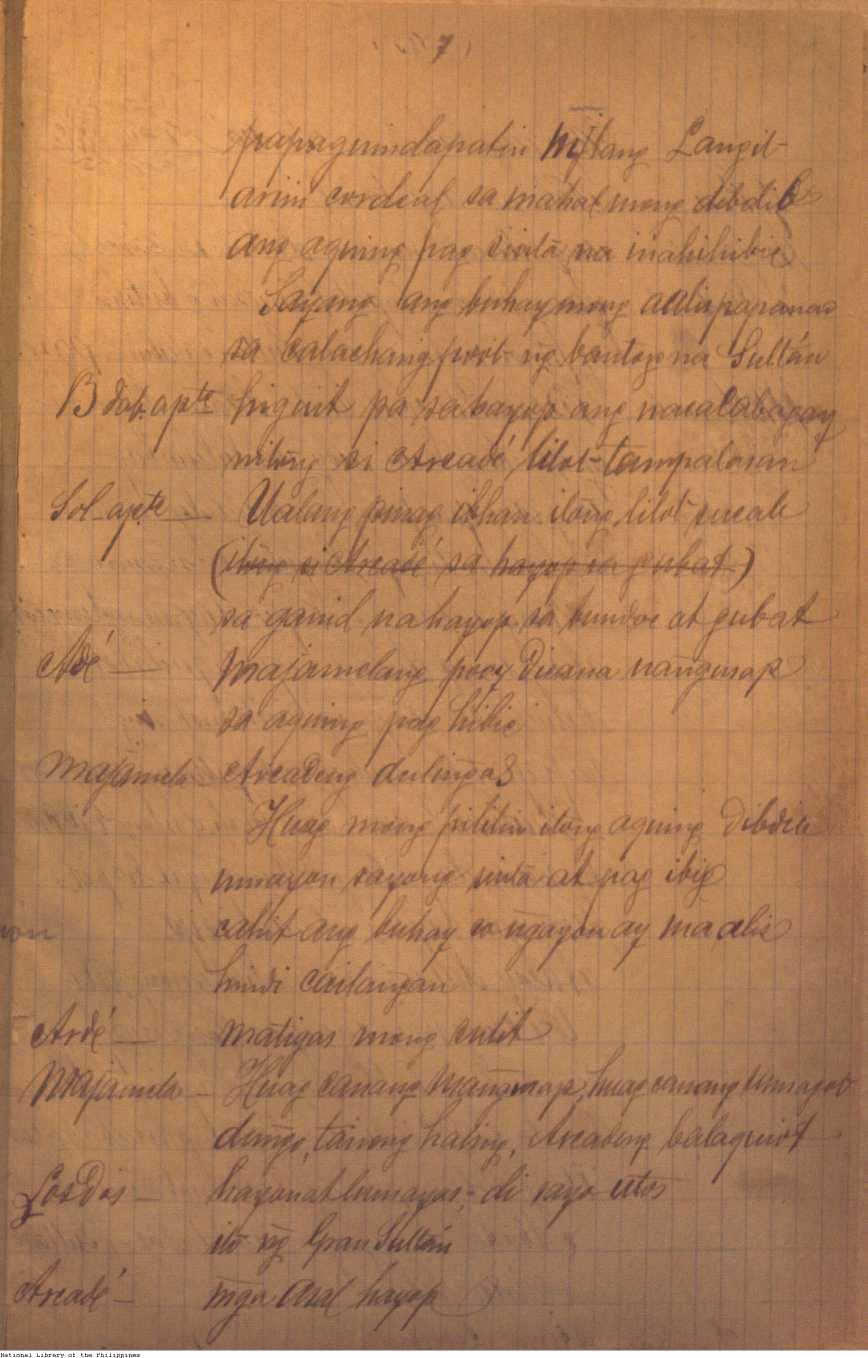 7
papaguindapatin nitang Langit
anim cordeal sa mahal mong dibdib
ang aquing pag sintâ na inahihibic
Sayang ang buhay mong
sa calachang poot ng bantog na Sultán
B dob. apte higuit pa sa hayop ang nacalabagay
nitong si Arcadé, lilot tampalasan
Sol apte — Ualang pinag ibhan itong lilot sucab
(itong si Arcadé sa hayop sa gubat)
sa ganid na hayop sa bundoc at gubat
Adé — Majamelang pooy Dicana nangusap
sa aquing pag hibic
Majamela Arcadeng
Huag mong pilitin itong aquing dibdib
umayon sayong sintá at pag ibig
cahit ang buhay co ngayon ay maalis
hindi cailangan
Ardé — Matigas mong sulit
Majamela — Huag canang Mangusap, huag canang sumagot
dungo, tauong haling, Arcadeng balaquiot
Los Dos — hayo at lumayas, di sayo utos
itó ng Gran Sultán
Arcadé — mga asal hayop
National Library of the Philippines